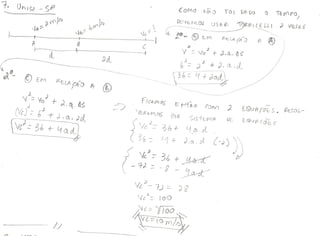 7. Unisa-SP
VA=2m/s VB=6m/s VC=?
A B C
d 2d
COMO NÃO FOI DADO O TEMPO,
PODEMOS USAR TORRICELLI 2 VEZES
B EM RELAÇÃO A A
V² = V0² + 2.a.ΔS
6² = 2² + 2.a.d
36 = 4 + 2ad
2º C EM RELAÇÃO A B
V² = V0² + 2.a.ΔS
(VC)² = 6² + 2.a.2d
VC² = 36 + 4ad
FICAMOS ENTÃO COM 2 EQUAÇÕES.
SISTEMA DE EQUAÇÕES
VC² = 36 + 4ad
36 = 4 + 2.a.d (-2)
VC² = 36 + 4ad
-72 = -8 - 4ad
VC² - 72 = 28
VC² = 100
VC = √100
VC = 10 m/s